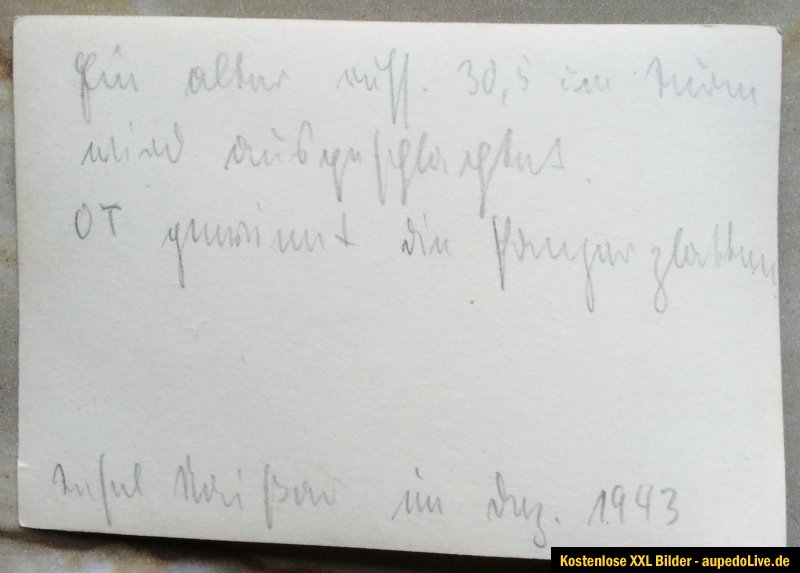 Ein alter russ. 30,5 cm Turm
wird ausgeschlachtet.
OT gewinnt die Panzerplatten
Insel Naissar im Dez. 1943
Kostenlose XXL Bilder - aupedoLive.de